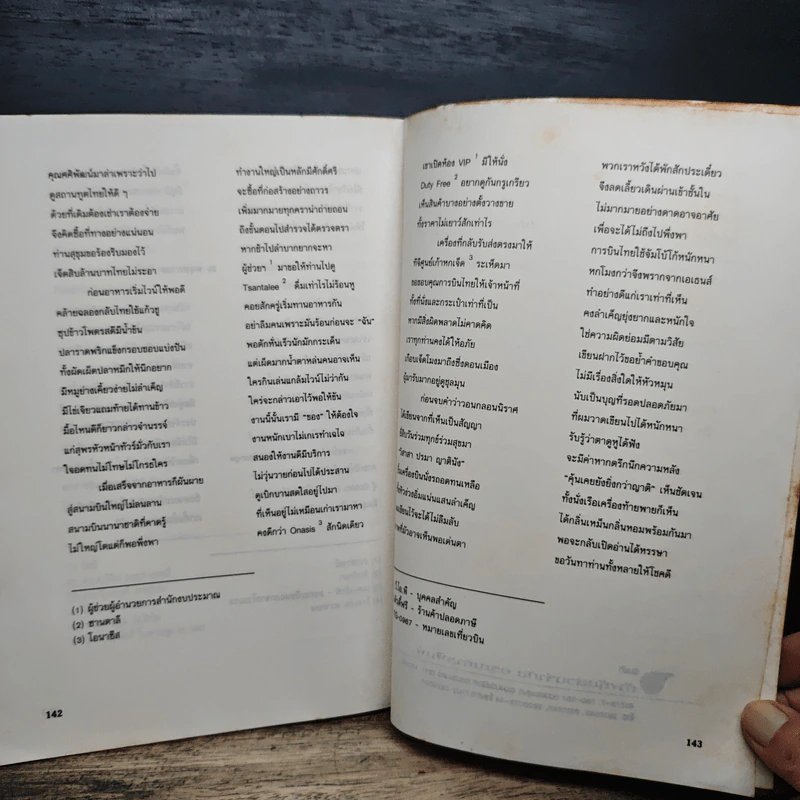 คุณศศิพัฒน์มาล่าเพราะว่าไป
ดูสถานทูตไทยให้ดี ๆ
ด้วยที่เดิมต้องเช่าเราต้องจ่าย
จึงคิดซื้อที่ทางอย่างแน่นอน
ท่านสุขุมขอร้องรีบมองไว้
เจ็ดสิบล้านบาทไทยไม่ระอา
ก่อนอาหารเริ่มไวน์ให้พอดี
คล้ายฉลองกลับไทยใช้แก้วชู
ซุปข้าวโพดรสดีมีน้ำข้น
ปลาราดพริกแข็งกรอบชอบแบ่งปัน
ทั้งผัดเผ็ดปลาหมึกให้นึกอยาก
มีหมูย่างเคี้ยวง่ายไม่ลำเค็ญ
มีไข่เจียวแถมท้ายได้ทานข้าว
มื้อไหนดีก็ยาวกล่าวจำนรรจ์
แก่สุพรหัวหน้าทัวร์มั่วกับเรา
ใจอดทนไม่โทษไม่โกรธใคร
เมื่อเสร็จจากอาหารก็ผันผาย
สู่สนามบินใหญ่ไม่ลนลาน
สนามบินนานาชาติที่คาดรู้
ไม่ใหญ่โตแต่ก็พอพึ่งพา
ทำงานใหญ่เป็นหลักมีศักดิ์ศรี
จะซื้อที่ก่อสร้างอย่างถาวร
เพิ่มมากมายทุกคราน่าถ่ายถอน
ถึงขั้นตอนไปสำรวจได้ตรวจตรา
หากช้าไปลำบากยากจะหา
ผู้ช่วยา 1 มาขอให้ท่านไปดู
Tsantalee 2 ดื่มเท่าไรไม่ร้อนหู
คอยสักครู่เริ่มทานอาหารกัน
อย่าลืมคนเพราะมันร้อนก่อนจะ “ฉัน”
พอตักทั่นเร็วนักมักกระเด็น
แต่เผ็ดมากน้ำตาหล่นคนอาจเห็น
ใครกินเล่นแกล้มไวน์ไม่ว่ากัน
ใคร่จะกล่าวเอาไว้พอให้ขัน
งานนี้นั้นเรามี “ของ” ให้ต้องใจ
งานหนักเบาไม่เกเรทำเฉไฉ
สนองให้งานดีมีบริการ
ไม่วุ่นวายก่อนไปได้ประสาน
ดูเบิกบานสดใสอยู่ไปมา
ที่เห็นอยู่ไม่เหมือนเก่าเรามาหา
คงดีกว่า Onasis 3 สักนิดเดียว
(1) ผู้ช่วยผู้อำนวยการสำนักงบประมาณ
(2) ซานตาลี
(3) โอนาซีส
142
เขาเปิดห้อง VIP 1 มีให้นั่ง
Duty Free 2 อยากดูกันกรูเกรียว
เห็นสินค้าบางอย่างตั้งวางขาย
ทั้งราคาไม่เยาว์สักเท่าไร
เครื่องที่กลับรับส่งตรงมาให้
ทีจีศูนย์เก้าหกเจ็ด 3 ระเห็ดมา
ขอขอบคุณการบินไทยให้เจ้าหน้าที่
ทั้งที่นั่งและกระเป๋าเท่าที่เป็น
หากมีสิ่งผิดพลาดไม่คาดคิด
เราทุกท่านคงได้ให้อภัย
เกือบเจ็ดโมงมาถึงซึ่งดอนเมือง
ผู้มารับมากอยู่ดูชุลมุน
ก่อนจบคำว่าวอนกลอนนิราศ
ได้เขียนจากที่เห็นเป็นสัญญา
พวกเราหวังได้พักสักประเดี๋ยว
จึงลดเลี้ยวเดินผ่านเข้าชั้นใน
ไม่มากมายอย่างคาดอาจอาศัย
เพื่อจะได้ไม่ถึงไปพึ่งพา
การบินไทยใช้จัมโบ้โก้หนักหนา
หกโมงกว่าจึงพรากจากเอเธนส์
ทำอย่างดีแก่เราเท่าที่เห็น
คงลำเค็ญยุ่งยากและหนักใจ
ใช่ความผิดย่อมมีตามวิสัย
เขียนฝากไว้ขอย้ำคำขอบคุณ
ไม่มีเรื่องสิ่งใดให้หัวหมุน
นับเป็นบุญที่รอดปลอดภัยมา
ที่ผมวาดเขียนไปได้หนักหนา
รับรู้ว่าตาดูหูได้ฟัง
จะมีค่าหากตรึกนึกความหลัง
“คุ้นเคยยังยิ่งกว่าญาติ” เห็นชัดเจน
ทั้งนั่งเรือเครื่องท้ายพายก็เห็น
ได้กลิ่นเหม็นกลิ่นหอมพร้อมกันมา
พอจะกลับเปิดอ่านได้หรรษา
ขอวันทาท่านทั้งหลายให้โชคดี
- บุคคลสำคัญ
- ร้านค้าปลอดภาษี
- หมายเลขเที่ยวบิน
143